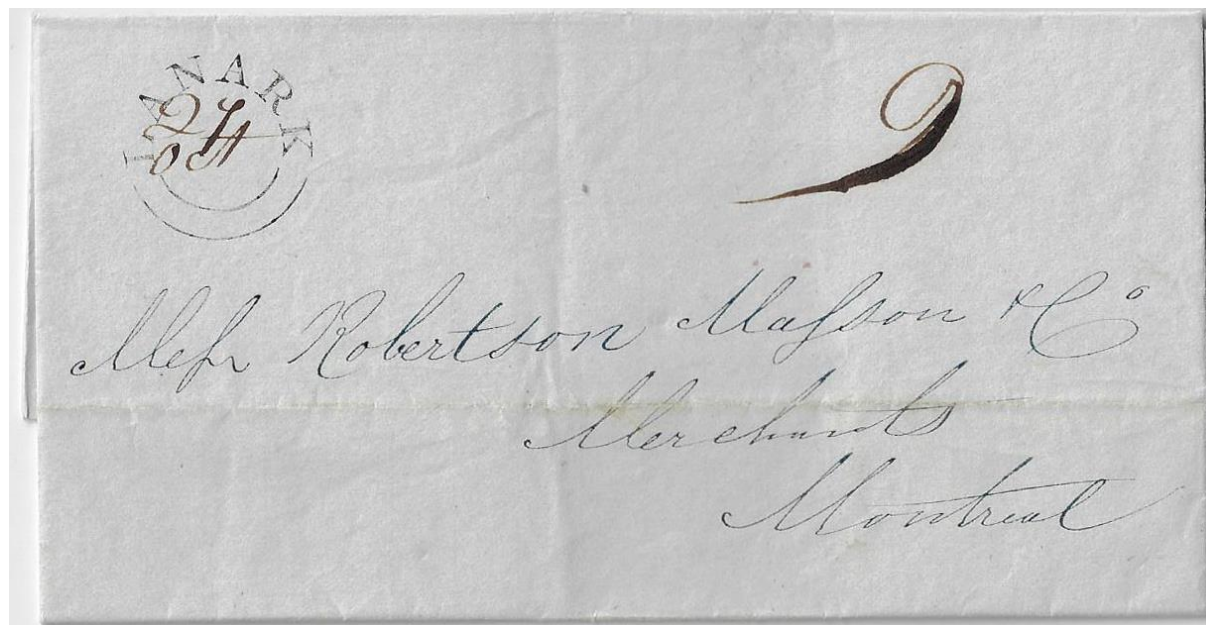 LANARK
oct
9
Meſsr Robertson Maſson & Co
Merchants
Montreal